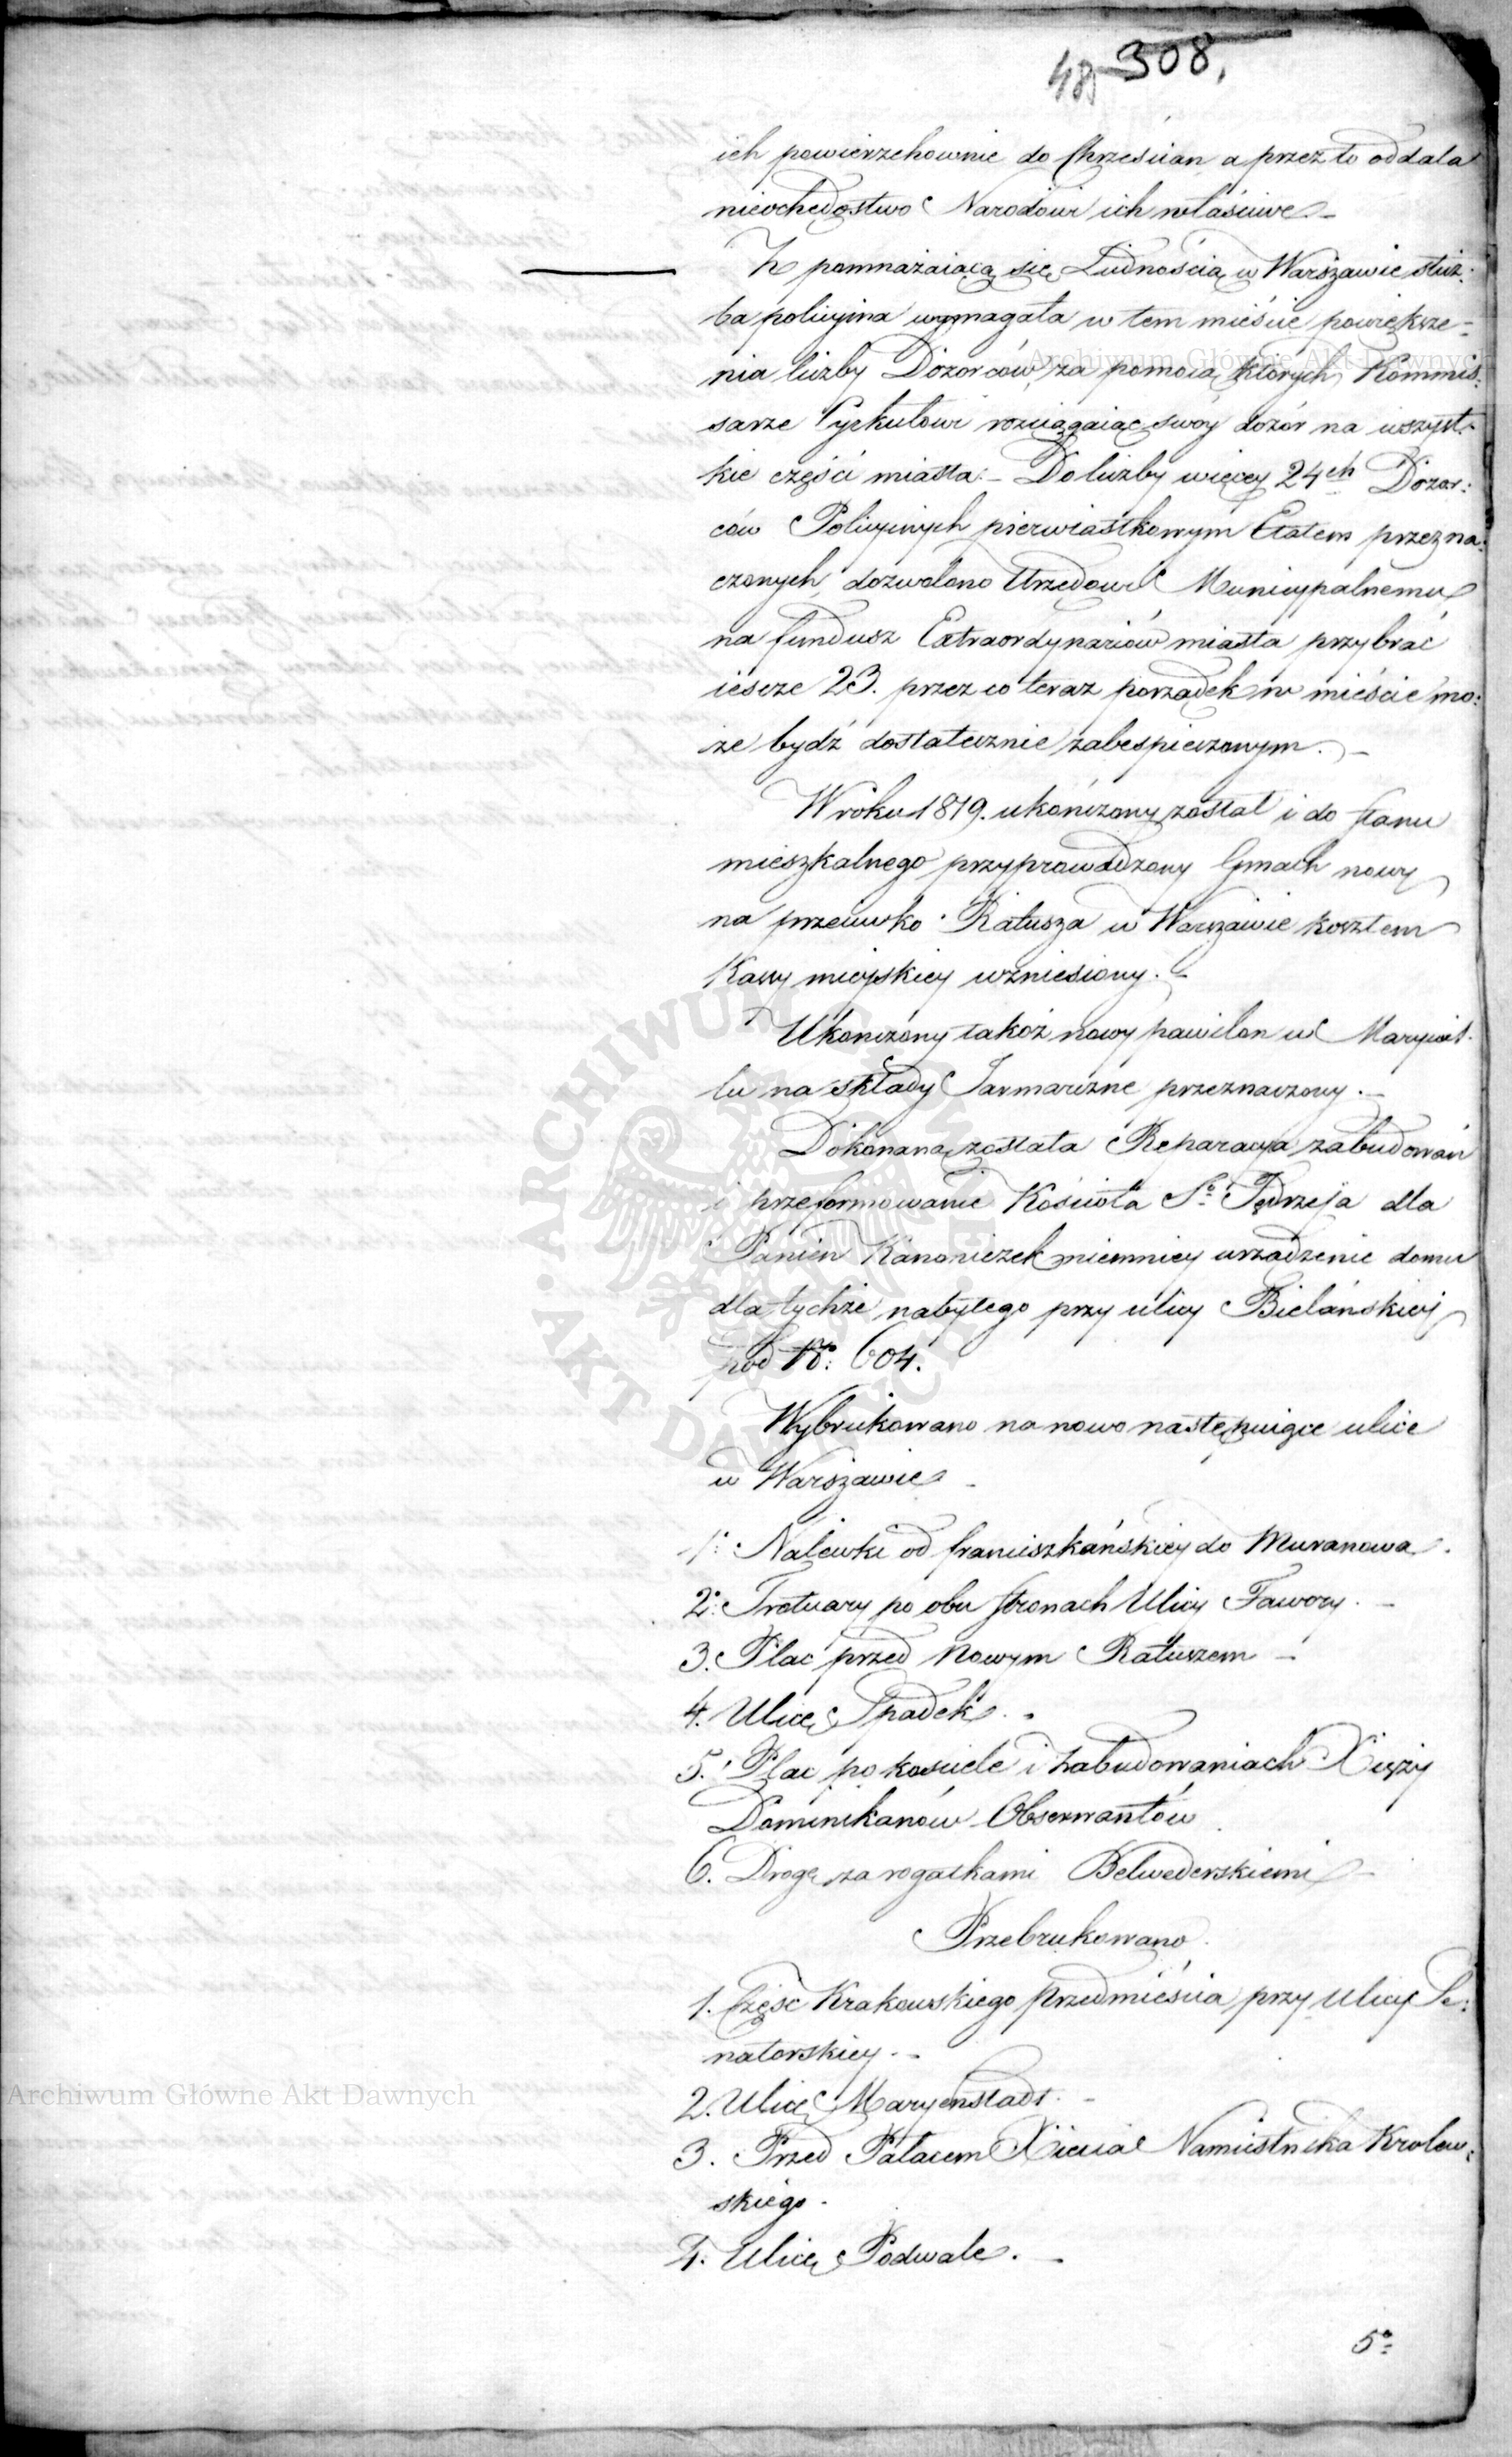 48. 308.
ich powierzchownie do Chrześcian a przez to oddala
nieochędostwo Narodowi ich właściwe –
Z pomnażaiącą się Ludnością w Warszawie służ:
ba policyina wymagała w tem mieście powiększe-
nia liczby Dozorców, za pomocą których Kommis:
sarze Cyrkułowi rozciągaiąc swóy dozór na wszyst-
kie części miasta. – Do liczby więcey 24ch Dozor:
ców Policyinych pierwiastkowym Etatem przezna:
czonych, dozwolono Urzędowi Municypalnemu
na fundusz Extraordynariów miasta przybrać
ieszcze 23. przez co teraz porządek w mieście mo:
że bydź dostatecznie zabespieczonym. –
W roku 1819. ukończony został i do stanu
mieszkalnego przyprowadzony Gmach nowy
na przeciwko Ratusza w Warszawie kosztem
Kassy mieyskiey wzniesiony. –
Ukończony takoż nowy pawilon w Marywil-
lu na składy Jarmarczne przeznaczony. –
Dokonana została Reparacya zabudowań
i przeformowanie Kościoła So Jędrzeja dla
Panien Kanoniczek niemniey urządzenie domu
dla tychże nabytego przy ulicy Bielańskiey
pod No: 604.
Wybrukowano na nowo następuiące ulice
w Warszawie –
1. Nalewki od franciszkańskiey do Muranowa.
2. Trotuary po obu stronach Ulicy Fawory. –
3. Plac przed Nowym Ratuszem –
4. Ulicę Spadek. –
5. Plac po kościele i zabudowaniach Xięży
Dominikanów Obserwantów
6. Drogę za rogatkami Belwederskiemi –
Przebrukowano
1. Część Krakowskiego Przedmieścia przy Ulicy Se:
natorskiey. –
2. Ulicę Maryenstadt. –
3. Przed Pałacem Xięcia Namiestnika Krolew:
skiego.
4. Ulicę Podwale. –
5o
Archiwum Główne Akt Dawnych
Archiwum Główne Akt Dawnych
ARCHIWUM GŁÓWNE AKT DAWNYCH